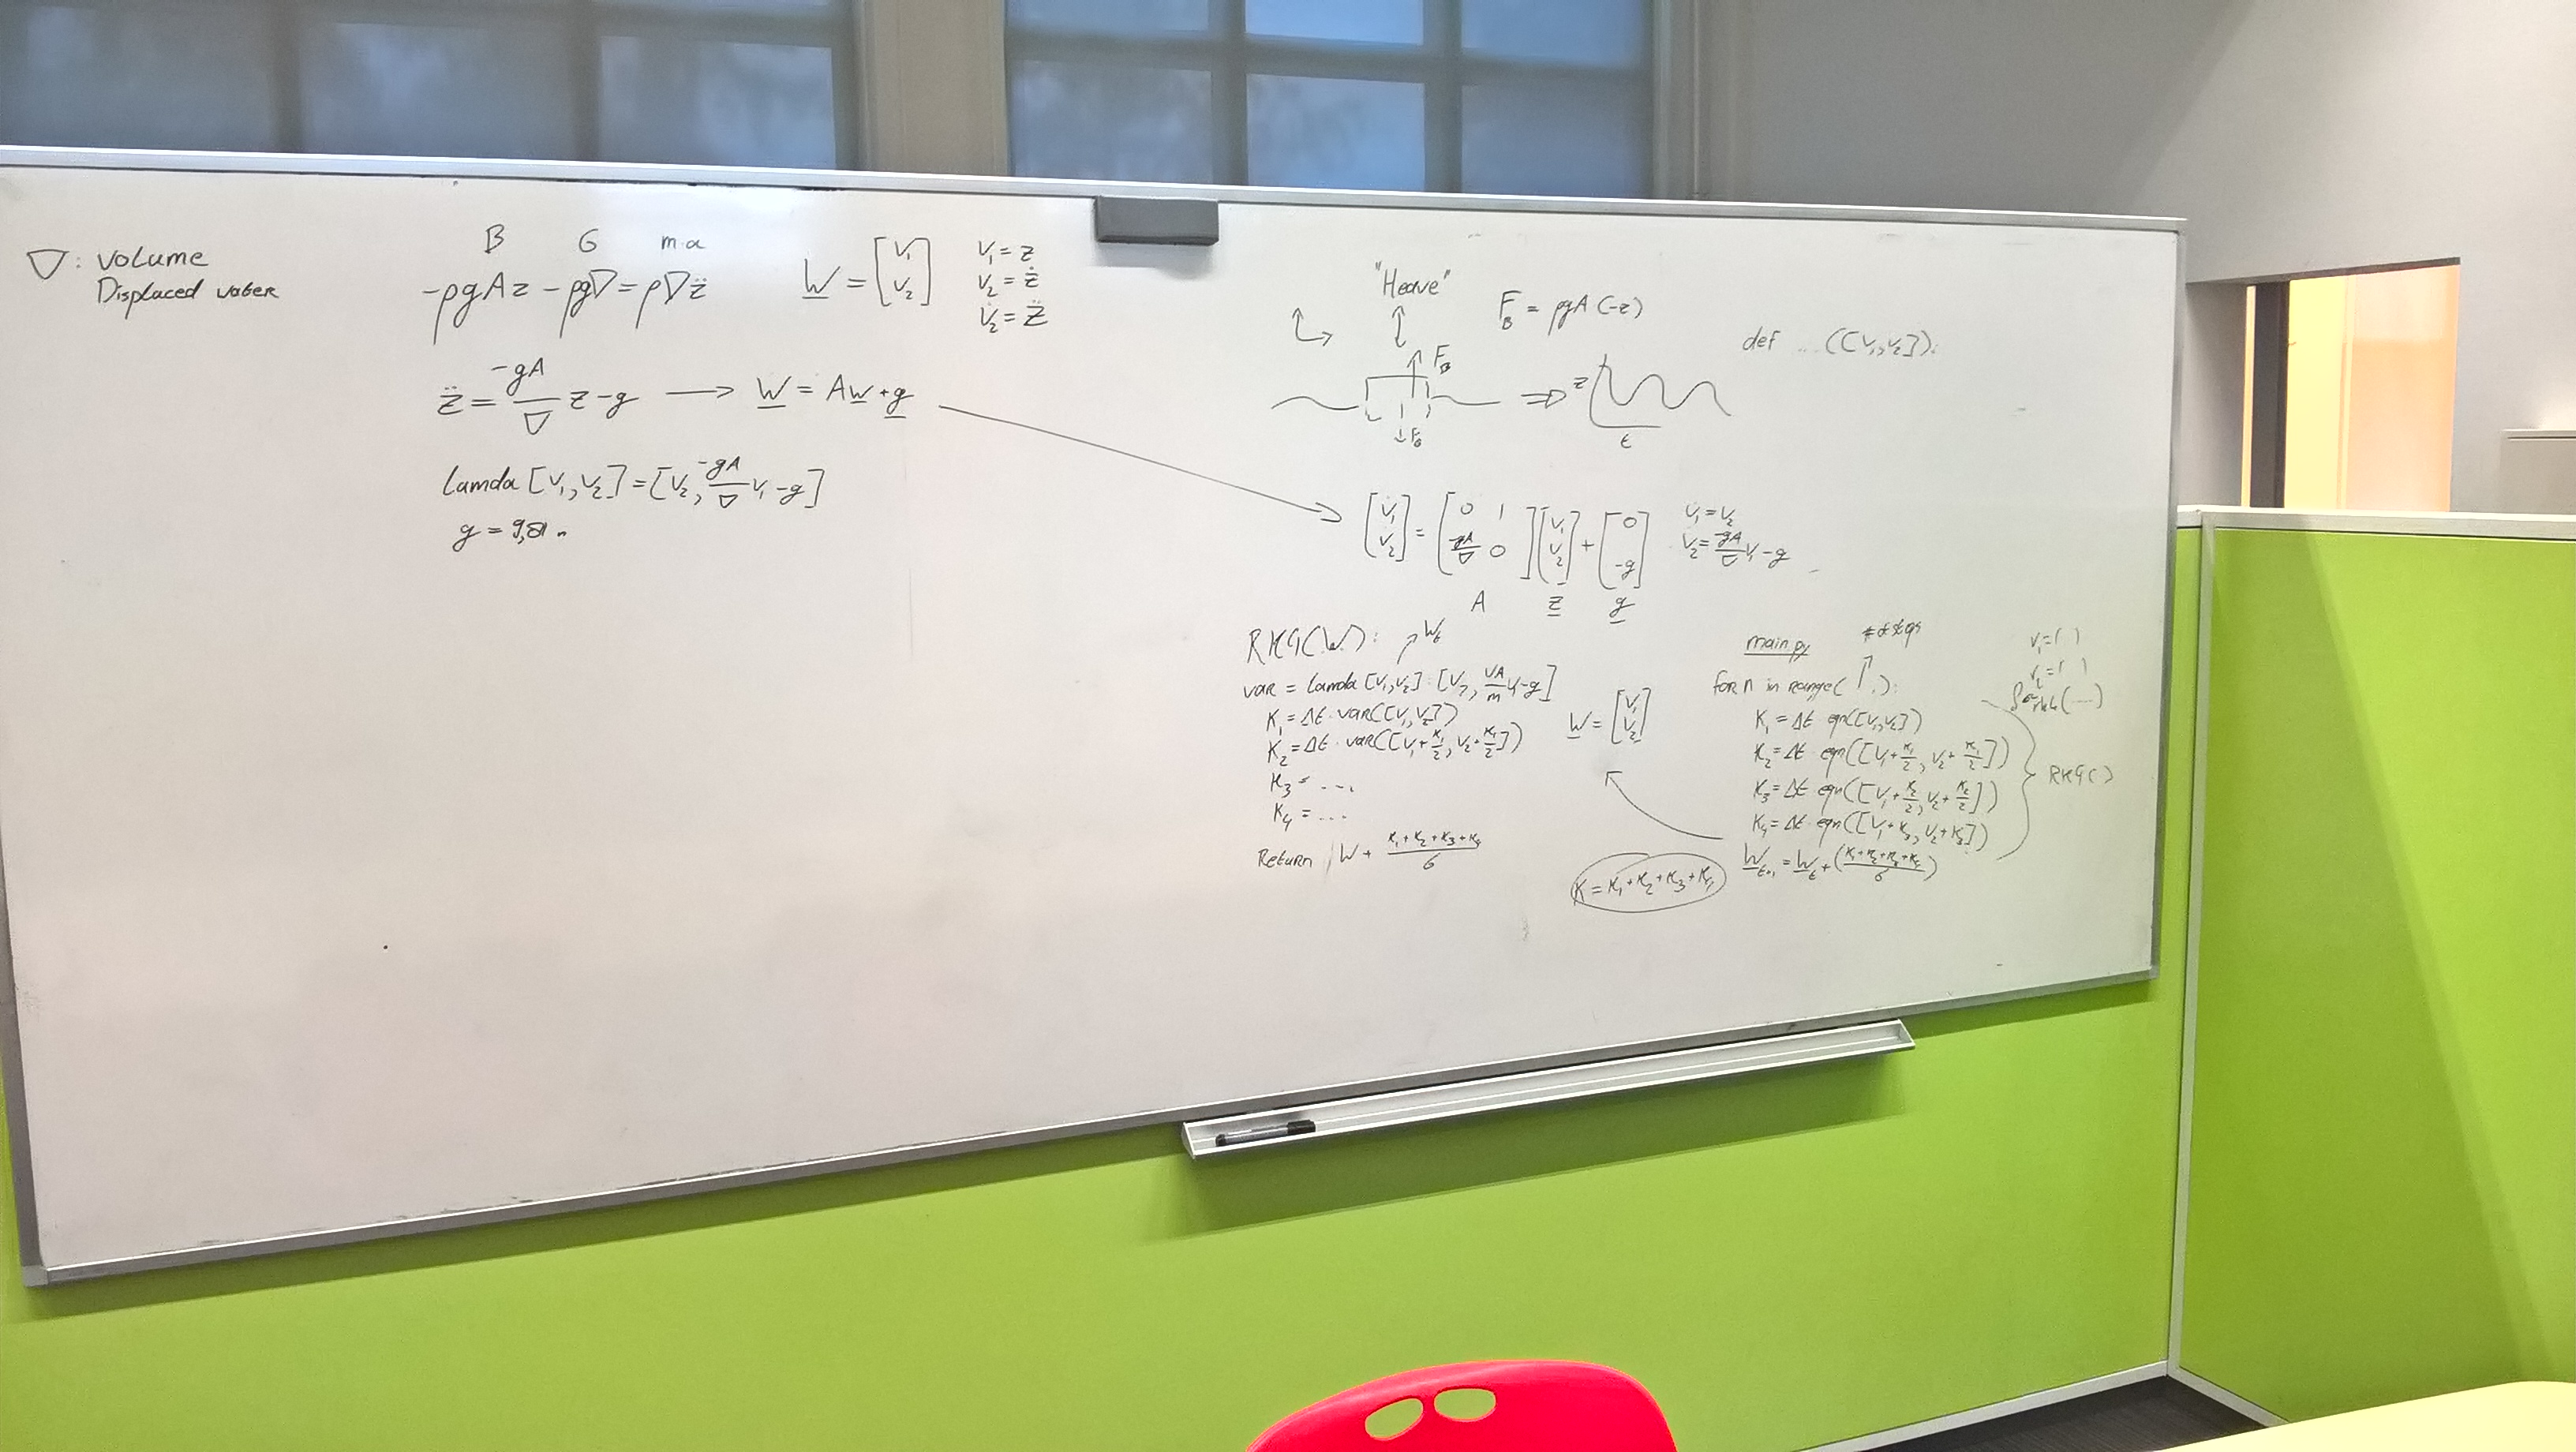 ▽: volume
Displaced water
B G m·a
-ρgAz - ρg▽ = ρ▽z̈
W = [v₁ v₂]
v₁ = z
v₂ = ż
v̇₂ = z̈
z̈ = -gA/▽ z - g → Ẇ = Aw + g
Lamda [v₁, v₂] = [v₂, -gA/▽ v₁ - g]
g = 9,81
"Heave"
F_B = ρgA(-z)
F_B
F_G
z
t
def ...([v₁,v₂]):
[v̇₁ v̇₂] = [0 1 -gA/▽ 0][v₁ v₂] + [0 -g]
A z g
v̇₁ = v₂
v̇₂ = -gA/▽ v₁ - g
RK4(W): ↗ Wₜ
var = Lamda [v₁,v₂]: [v₂, VA/m v₁-g]
K₁ = Δt · var([v₁, v₂])
K₂ = Δt · var([v₁+K₁/2, v₂+K₁/2])
K₃ = ...
K₄ = ...
Return W + K₁+K₂+K₃+K₄/6
W = [v₁ v₂]
K = K₁+K₂+K₃+K₄
main.py
# of steps
for n in range( ):
K₁ = Δt · eqn([v₁,v₂])
K₂ = Δt · eqn([v₁+K₁/2, v₂+K₁/2])
K₃ = Δt · eqn([v₁+K₂/2, v₂+K₂/2])
K₄ = Δt · eqn([v₁+K₃, v₂+K₃])
Wₜ₊₁ = Wₜ + (K₁+K₂+K₃+K₄/6)
RK4( )
v₁ = ( )
v₂ = ( )